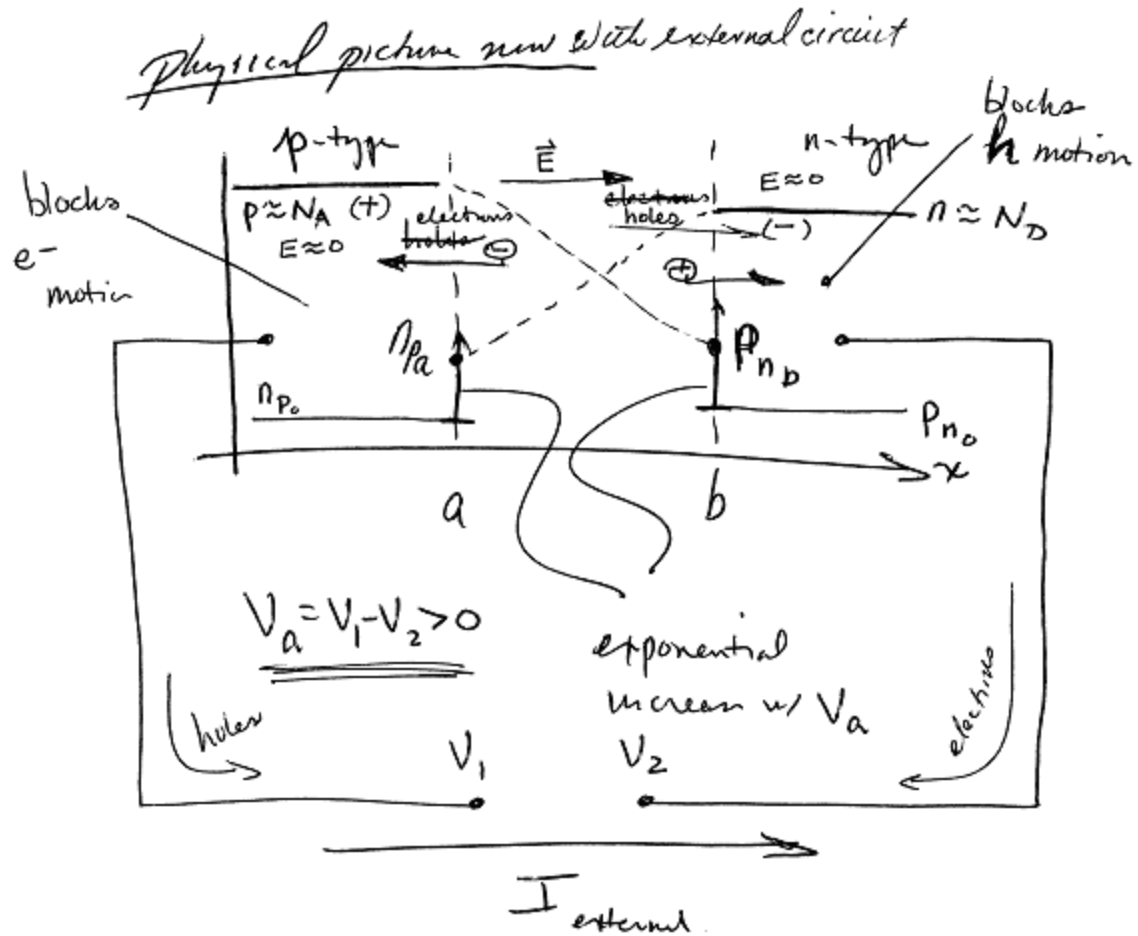 physical picture now with external circuit
blocks
h motion
p-type
E
n-type
E≈0
blocks
e-
motion
p ≈ NA (+)
E≈0
electrons
holes
-
electrons
holes
(-)
n ≈ ND
+
npa
Pnb
npo
Pno
x
a
b
Va = V1-V2 > 0
exponential
increase w/ Va
holes
electrons
V1
V2
I external